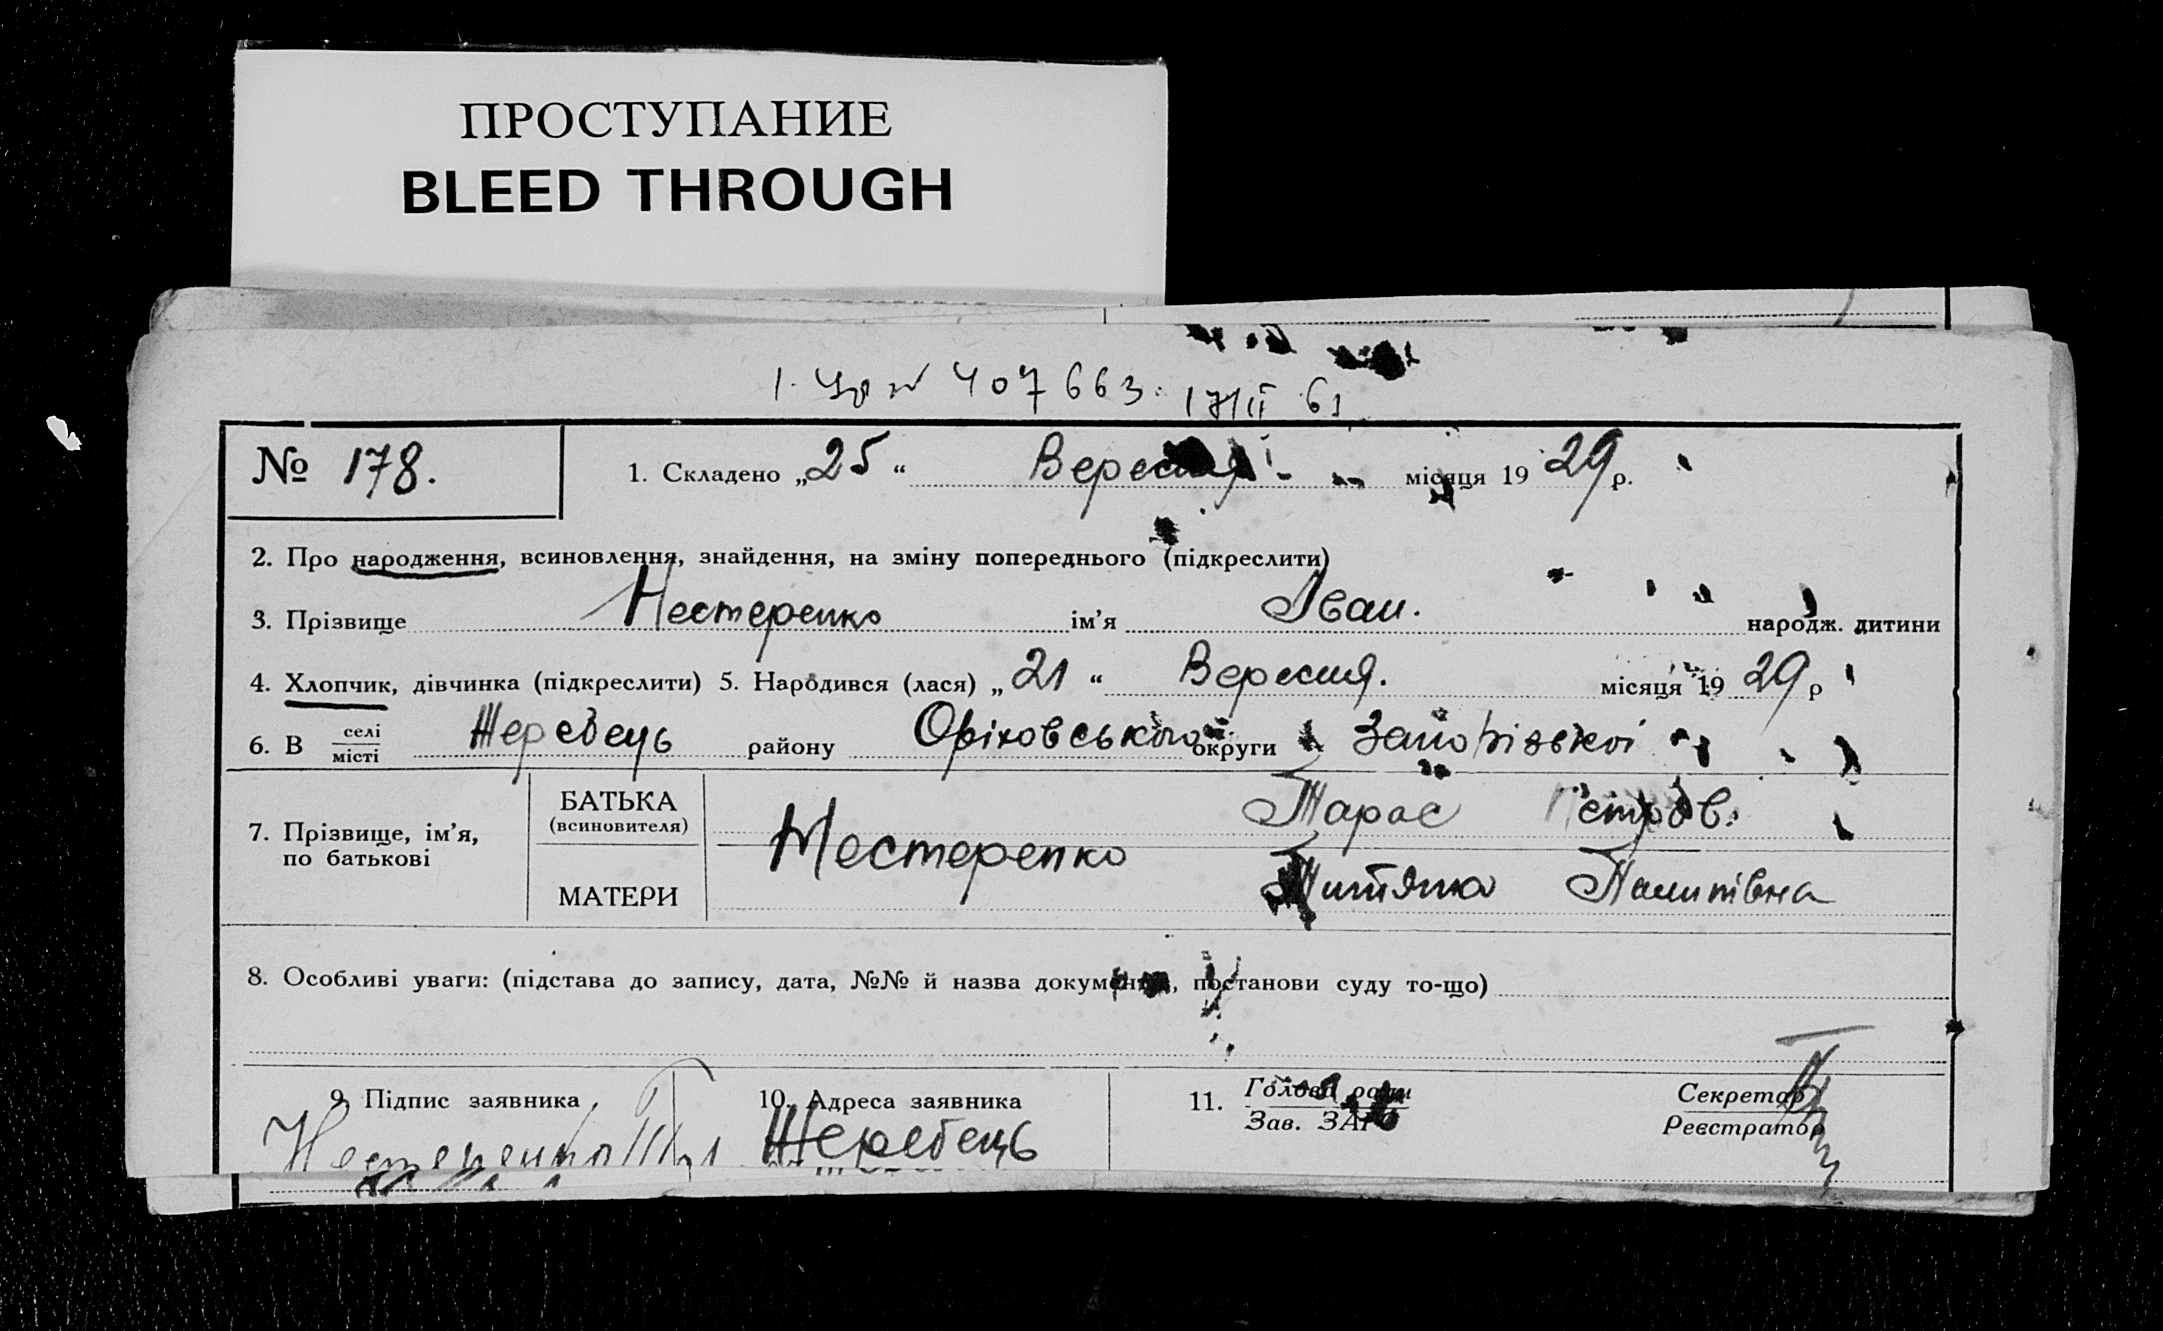 ПРОСТУПАНИЕ
BLEED THROUGH
407663. 17/II 61
№ 178.
1. Складено „25“ Вересня місяця 1929 р.
2. Про народження, всиновлення, знайдення, на зміну попереднього (підкреслити)
3. Прізвище Нестеренко ім'я Іван. народж. дитини
4. Хлопчик, дівчинка (підкреслити) 5. Народився (лася) „21“ Вересня. місяця 1929 р
6. В селі місті Жеребець району Оріховського округи Запорізької
7. Прізвище, ім'я, по батькові
БАТЬКА (всиновителя)
МАТЕРИ
Нестеренко
Тарас Петров.
Пилипівна
8. Особливі уваги: (підстава до запису, дата, №№ й назва документа, постанови суду то-що)
9. Підпис заявника
Нестеренко
10. Адреса заявника
Жеребець
11. Голова ради
Зав. ЗАГС
Секретар
Реєстратор